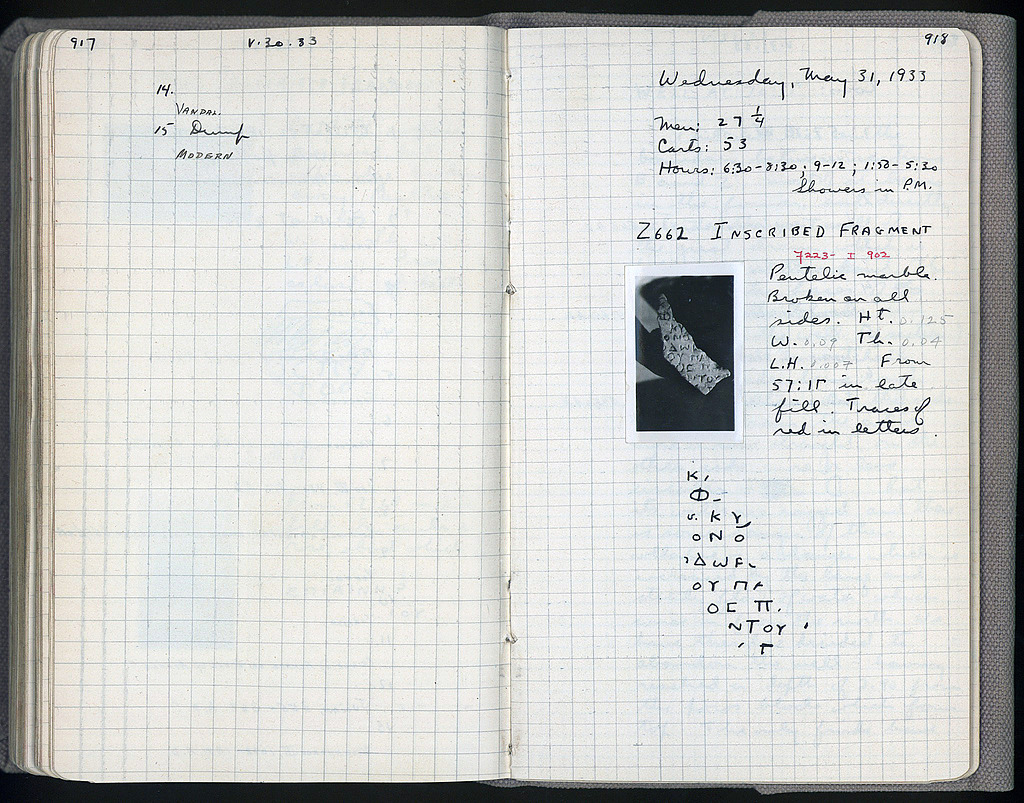 917
V.30.33
14.
VANDAL.
15 Dump
MODERN
918
Wednesday, May 31, 1933
Men: 27 1/4
Carts: 53
Hours: 6:30-8:30; 9-12; 1:30-5:30
Showers in P.M.
Z662 INSCRIBED FRAGMENT
7223- I 902
Pentelic marble.
Broken on all
sides. Ht. 0.125
W. 0.09 Th. 0.04
L.H. 0.007 From
in late
fill. Traces of
red in letters.
Κ
Φ
ΚΥ
ΟΝΟ
ΔωΡ
ΟΥ ΠΑ
ΟΣ Π
ΝΤΟΥ
Γ